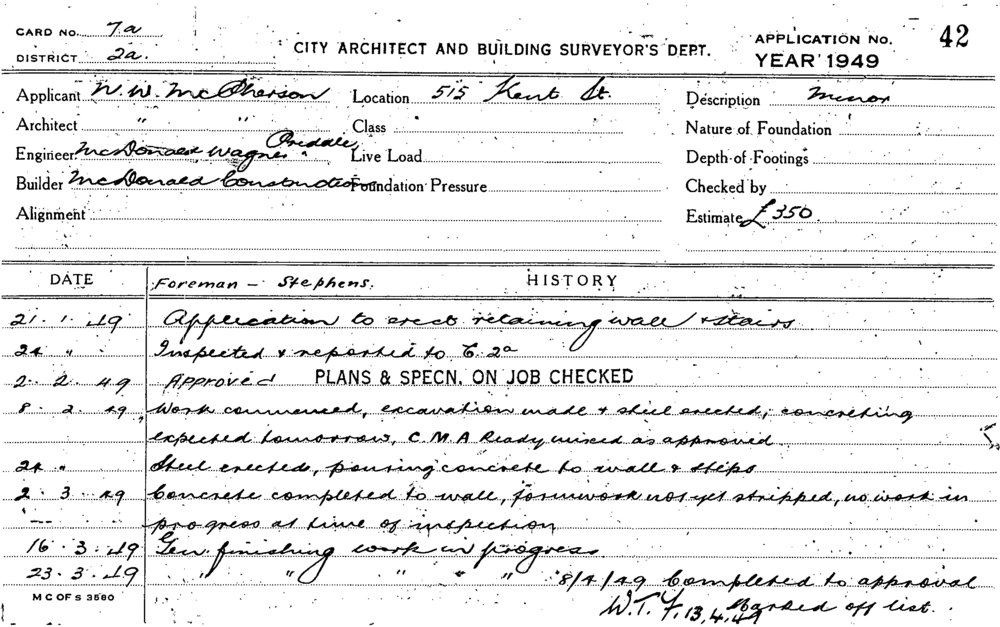 CARD No. 7a
DISTRICT 2a.
CITY ARCHITECT AND BUILDING SURVEYOR'S DEPT.
APPLICATION No. 42
YEAR 1949
Applicant N. W. McPherson Location 515 Kent St. Description Minor
Architect " " Class Nature of Foundation
Engineer McDonald Wagner Priddle, Live Load Depth of Footings
Builder McDonald Construction Foundation Pressure Checked by
Alignment Estimate £350
DATE Foreman - Stephens. HISTORY
21. 1. 49 Application to erect retaining wall & stairs
24 " " Inspected & reported to C. 2a
2. 2. 49 Approved PLANS & SPECN. ON JOB CHECKED
8. 2. 49 Work commenced, excavation made & steel erected, concreting
expected tomorrow, C.M.A Ready mixed as approved.
24 " Steel erected, pouring concrete to wall & steps
2. 3. 49 Concrete completed to wall, formwork not yet stripped, no work in
progress at time of inspection
16. 3. 49 Gen. finishing work in progress.
23. 3. 49 " " " " " 8/4/49 Completed to approval
M C OF S 3580 W.T.F. 13.4.49 Marked off list.